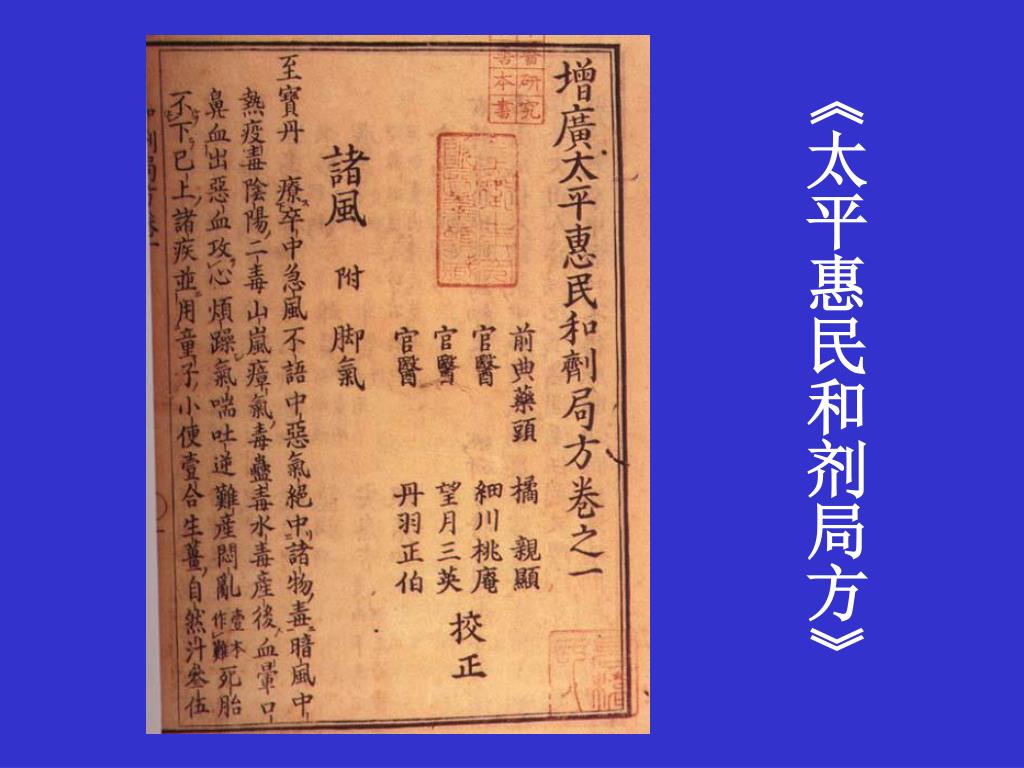 《太平惠民和剂局方》
增廣太平惠民和劑局方卷之一
前典藥頭 橘 親顯
官醫 細川桃庵
官醫 望月三英 挍正
官醫 丹羽正伯
諸風 附 脚氣
至寶丹 療卒中急風不語中惡氣絕中諸物毒暗風中
熱疫毒陰陽二毒山嵐瘴氣毒蠱毒水毒產後血暈口
鼻血出惡血攻心煩躁氣喘吐逆難產悶亂壹本作難死胎
不下已上諸疾並用童子小便壹合生薑自然汁叄伍
醫研究
善本書